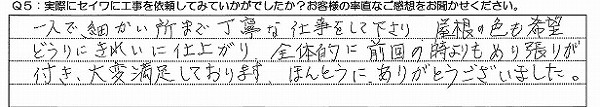 Q5：実際にセイワに工事を依頼してみていかがでしたか？お客様の率直なご感想をお聞かせください。
一人で、細かい所まで丁寧な仕事をして下さり　屋根の色も希望
どうりにきれいに仕上がり　全体的に前回の時よりもめり張りが
付き、大変満足しております。ほんとうに、ありがとうございました。